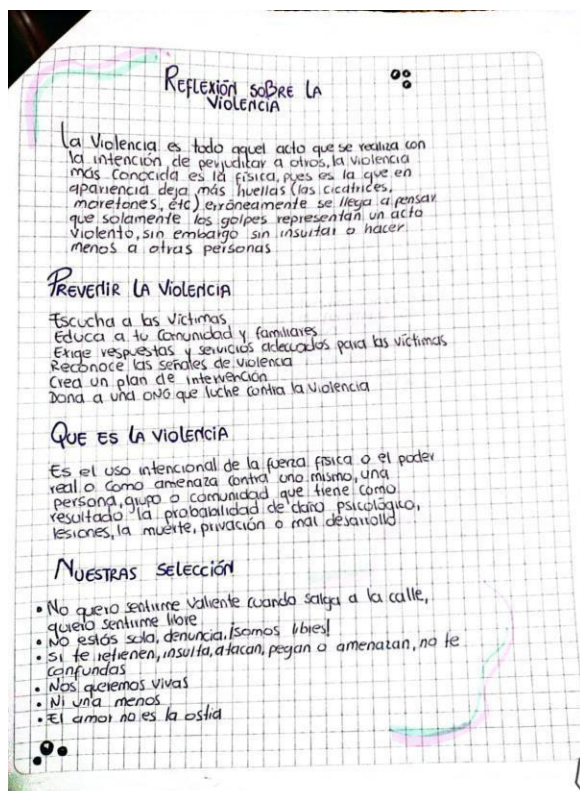 REFLEXIÓN SOBRE LA
VIOLENCIA
La Violencia es todo aquel acto que se realiza con
la intención de perjudicar a otros, la violencia
más conocida es la física, pues es la que en
apariencia deja más huellas (las cicatrices,
moretones, etc) erróneamente se llega a pensar
que solamente los golpes representan un acto
violento, sin embargo sin insultar o hacer
menos a otras personas
PREVENIR LA VIOLENCIA
Escucha a las víctimas
Educa a tu comunidad y familiares
Exige respuestas y servicios adecuados para las víctimas
Reconoce las señales de violencia
Crea un plan de intervención
Dona a una ONG que luche contra la violencia
QUE ES LA VIOLENCIA
Es el uso intencional de la fuerza física o el poder
real o como amenaza contra uno mismo, una
persona, grupo o comunidad que tiene como
resultado la probabilidad de daño psicológico,
lesiones, la muerte, privación o mal desarrollo
NUESTRAS SELECCIÓN
• No quiero sentirme valiente cuando salga a la calle,
quiero sentirme libre
• No estás sola, denuncia, ¡somos libres!
• Si te retienen, insulta, atacan, pegan o amenazan, no te
confundas
• Nos queremos vivas
• Ni una menos
• El amor no es la ostia